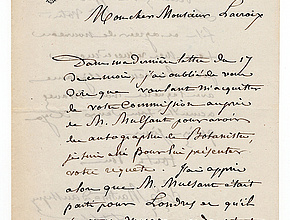 Mon cher Monsieur Lacroix
Dans ma dernière lettre du 17
de ce mois j'ai oublié de vous
dire que voulant m'acquitter
de votre Commission auprès
de M. Mulsant pour avoir
des autographes de Botanistes,
je suis allé pour lui présenter
votre requête. J'ai appris
alors que M. Mulsant était
parti pour Londres et qu'il